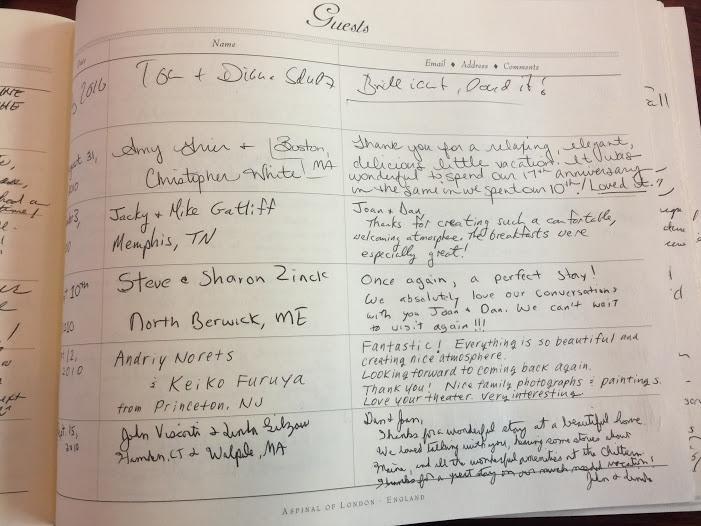 Guests
Name
Email ♦ Address ♦ Comments
2010
Tom + Diane
Brilliant, Dan & J!
August 31,
2010
Amy + Boston,
Christopher White MA
Thank you for a relaxing, elegant,
delicious little vacation. It was
wonderful to spend our 17th anniversary
in the same inn we spent our 10th! Loved it.
3,
Jacky & Mike Gatliff
Memphis, TN
Joan & Dan,
Thanks for creating such a comfortable,
welcoming atmosphere. The breakfasts were
especially great!
10th
2010
Steve & Sharon Zinck
North Berwick, ME
Once again, a perfect stay!
We absolutely love our conversations
with you Joan & Dan. We can't wait
to visit again!!!
12,
2010
Andriy Norets
& Keiko Furuya
from Princeton, NJ
Fantastic! Everything is so beautiful and
creating nice atmosphere.
Looking forward to coming back again.
Thank you! Nice family photographs & paintings.
Love your theater. Very interesting
Sept. 15,
2010
John Visconti & Linda
Hamden, CT & Walpole, MA
Dan & Joan,
Thanks for a wonderful stay at a beautiful home.
We loved talking with you, hearing some stories about
Maine, and all the wonderful amenities at the Chiltern.
Thanks for a great stay on our much needed vacation!
John & Linda
ASPINAL OF LONDON · ENGLAND